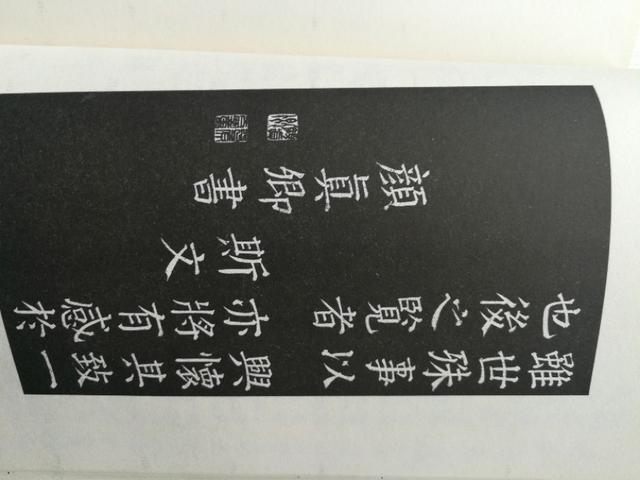 雖世殊事以興懷其致一
也後之覽者亦將有感於
斯文
顏真卿書